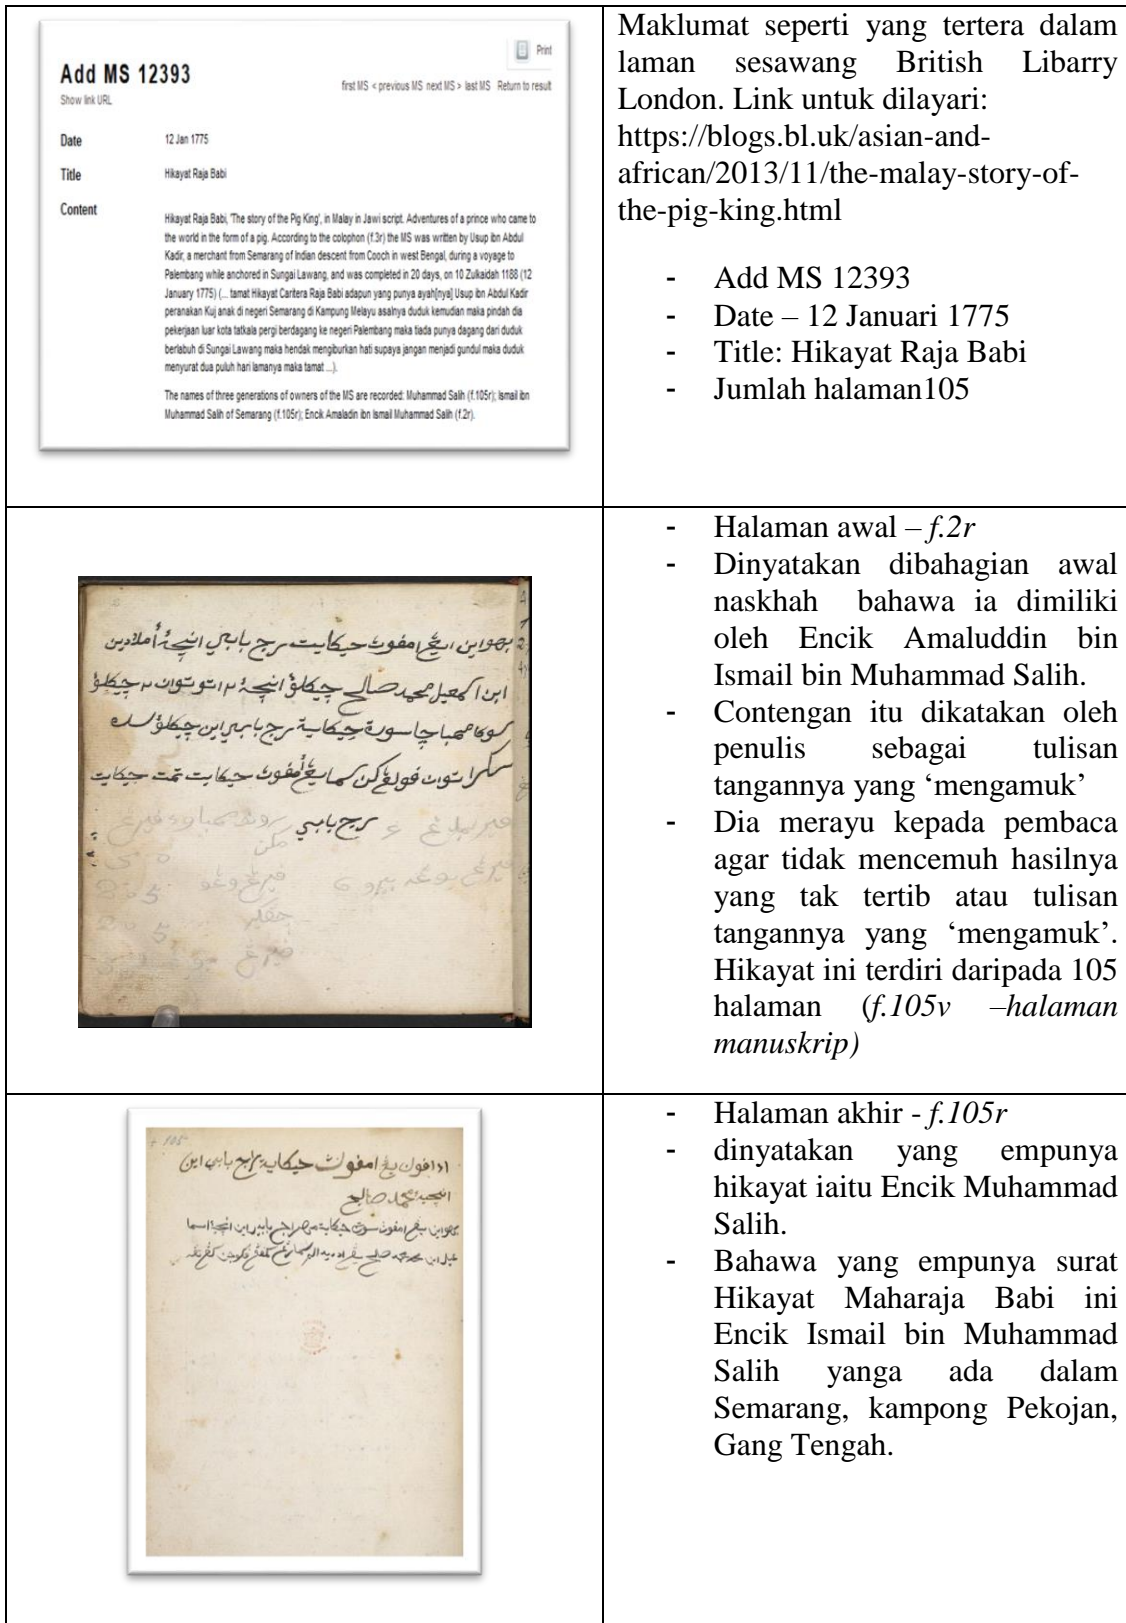 Print
Add MS 12393
first MS < previous MS next MS > last MS Return to result
Show link URL
Date 12 Jan 1775
Title Hikayat Raja Babi
Content
Hikayat Raja Babi, 'The story of the Pig King', in Malay in Jawi script. Adventures of a prince who came to
the world in the form of a pig. According to the colophon (f.3r) the MS was written by Usup ibn Abdul
Kadir, a merchant from Semarang of Indian descent from Cooch in west Bengal, during a voyage to
Palembang while anchored in Sungai Lawang, and was completed in 20 days, on 10 Zulkaidah 1188 (12
January 1775) (... tamat Hikayat Caritera Raja Babi adapun yang punya ayah[nya] Usup ibn Abdul Kadir
peranakan Kuj anak di negeri Semarang di Kampung Melayu asalnya duduk kemudian maka pindah dia
pekerjaan luar kota tatkala pergi berdagang ke negeri Palembang maka tiada punya dagang dari duduk
berlabuh di Sungai Lawang maka hendak mengiburkan hati supaya jangan menjadi gundul maka duduk
menyurat dua puluh hari lamanya maka tamat ...).
The names of three generations of owners of the MS are recorded: Muhammad Salih (f.105r); Ismail ibn
Muhammad Salih of Semarang (f.105r); Encik Amaladin ibn Ismail Muhammad Salih (f.2r).
Maklumat seperti yang tertera dalam
laman sesawang British Libarry
London. Link untuk dilayari:
https://blogs.bl.uk/asian-and-
african/2013/11/the-malay-story-of-
the-pig-king.html
- Add MS 12393
- Date – 12 Januari 1775
- Title: Hikayat Raja Babi
- Jumlah halaman105
بهواين ايڠ امفوث حيكايت رج بابي انيچئ أملادين
ابن اسمعيل محمد صالح چيكلؤ انيچئ ٢ اتو توان ٢ چيكلؤ
سوكا ممباچا سورة حيكاية رج بابي اين چيكلؤ سده
توان فولڠكن كمايڠ أمفوث حيكايت تمت حيكايت
رج بابي
- Halaman awal – f.2r
- Dinyatakan dibahagian awal
naskhah bahawa ia dimiliki
oleh Encik Amaluddin bin
Ismail bin Muhammad Salih.
- Contengan itu dikatakan oleh
penulis sebagai tulisan
tangannya yang ‘mengamuk’
- Dia merayu kepada pembaca
agar tidak mencemuh hasilnya
yang tak tertib atau tulisan
tangannya yang ‘mengamuk’.
Hikayat ini terdiri daripada 105
halaman (f.105v –halaman
manuskrip)
105
ادافون يڠ امفوث حيكاية رج بابي اين
انيچئ محمد صالح
- Halaman akhir - f.105r
- dinyatakan yang empunya
hikayat iaitu Encik Muhammad
Salih.
- Bahawa yang empunya surat
Hikayat Maharaja Babi ini
Encik Ismail bin Muhammad
Salih yanga ada dalam
Semarang, kampong Pekojan,
Gang Tengah.